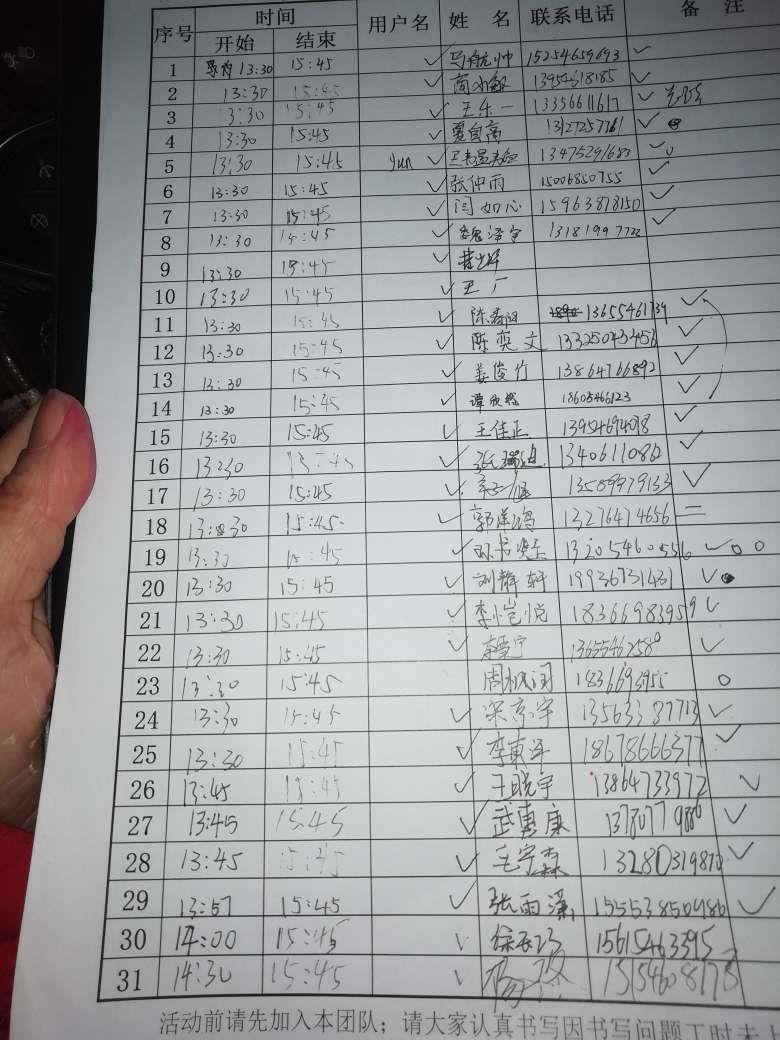 序号 时间 用户名 姓名 联系电话 备注
开始 结束
1 13:30 15:45 15254659693
2 13:30 15:45 13954318185
3 13:30 15:45 王乐一 13356611617
4 13:30 15:45 13127257761
5 13:30 15:45 Yun
6 13:30 15:45 张仲雨 15006850755
7 13:30 15:45 闫如心 15963878150
8 13:30 15:45 魏泽宇 13181997722
9 13:30 15:45
10 13:30 15:45 王广
11 13:30 15:45 13655461739
12 13:30 15:45 陈奕文 13325043456
13 13:30 15:45 姜俊竹 13864766892
14 13:30 15:45 18605466123
15 13:30 15:45 王佳正 13954694078
16 13:30 15:45
17 13:30 15:45 13589979133
18 13:30 15:45 13276414656
19 13:30 15:45 13205460556
20 13:30 15:45 刘静轩 19936731431
21 13:30 15:45 李恺悦 18366983959
22 13:30 15:45 13655462580
23 13:30 15:45
24 13:30 15:45 宋京宇 13563387713
25 13:30 15:45 李東洋 18678666377
26 13:45 15:45 王晓宇 13864733972
27 13:45 15:45 武惠康
28 13:45 15:45 王宇森 13280319872
29 13:57 15:45 张雨泽 15553850486
30 14:00 15:45 15615463395
31 14:30 15:45 杨 15154608178
活动前请先加入本团队；请大家认真书写因书写问题工时未上